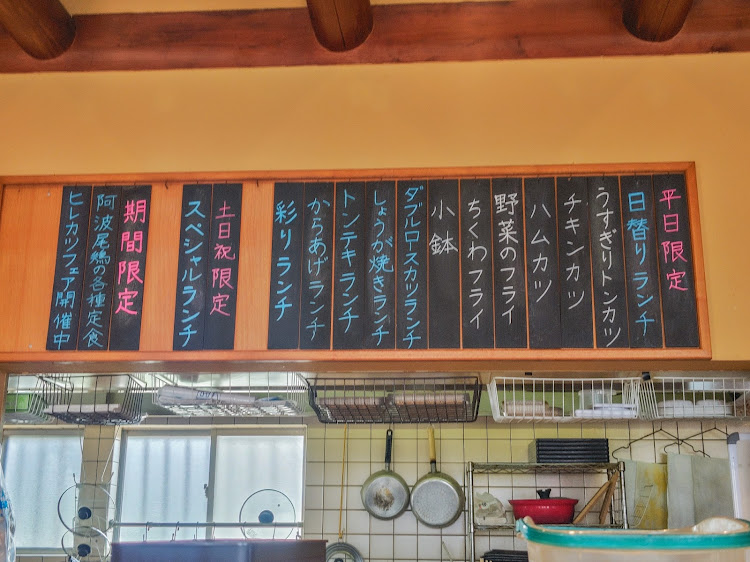 平日限定
日替りランチ
うすぎりトンカツ
チキンカツ
ハムカツ
野菜のフライ
ちくわフライ
小鉢
ダブルロースカツランチ
しょうが焼きランチ
トンテキランチ
からあげランチ
彩りランチ
土日祝限定
スペシャルランチ
期間限定
阿波尾鶏の各種定食
ヒレカツフェア開催中